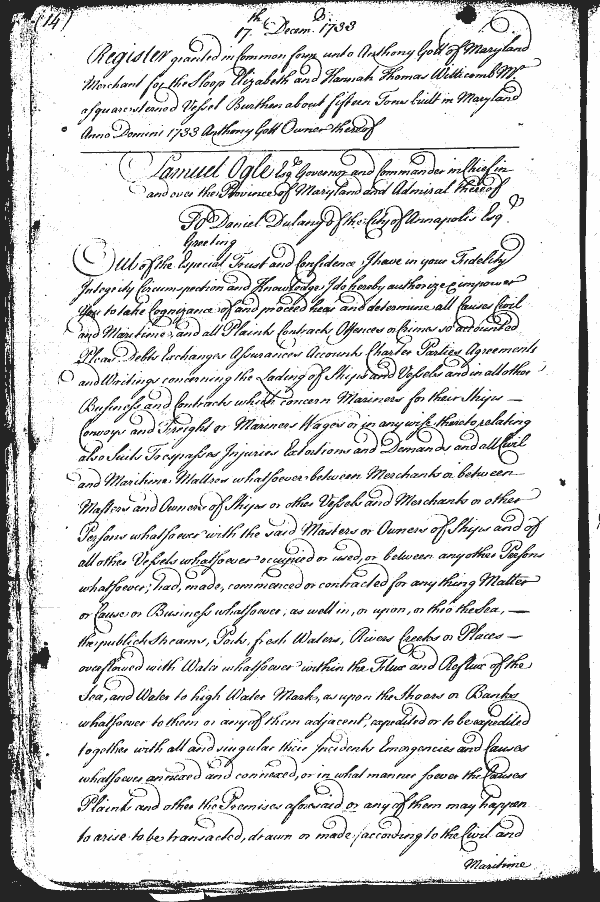 (14)
17.th Decem.b 1733
Register granted in Common form unto Anthony Gott of Maryland
Merchant for the Sloop Elizabeth and Hannah Thomas Wellicomb M.r
of square sternod Vessel Burthen about fifteen Tons built in Maryland
Anno Domini 1733 Anthony Gott Owner thereof
Samuel Ogle Esq.r Governor and Commander in Chief in
and over the Province of Maryland and Admiral thereof
To Daniel Dulany of the City of Annapolis Esq.r
Greeting
Out of the Especial Trust and Confidence I have in your Fidelity
Integrity Circumspection and Knowledge I do hereby authorize & impower
You to take Cognizance of and proceed hear and determine all Causes Civil
and Maritime, and all Plaints Contracts Offences or Crimes so accounted
Pleas Debts Exchanges Assurances Accounts Charter Parties Agreements
and Writings concerning the Lading of Ships and Vessels and in all other
Business and Contracts which concern Mariners for their Ships —
Convoys and Freight or Mariners Wages or in any wise thereto relating
also Suits Trespasses Injuries Extortions and Demands and all Civil
and Maritime Matters whatsoever between Merchants or between
Masters and Owners of Ships or other Vessels and Merchants or other
Persons whatsoever with the said Masters or Owners of Ships and of
all other Vessels whatsoever occupied or used, or between any other Persons
whatsoever; had, made, commenced or contracted for any thing Matter
or Cause or Business whatsoever, as well in, or upon, or thro the Sea, —
the publick Streams, Ports, fresh Waters, Rivers Creeks or Places —
overflowed with Water whatsoever within the Flux and Reflux of the
Sea, and Water to high Water Mark, as upon the Shoers or Banks
whatsoever to them or any of them adjacent, expedited or to be expedited
together with all and singular their Incidents Emergencies and Causes
whatsoever annexed and connexed, or in what manner soever the Causes
Plaints and other the Premises aforesaid or any of them may happen
to arise to be transacted, drawn or made (according to the Civil and
Maritime